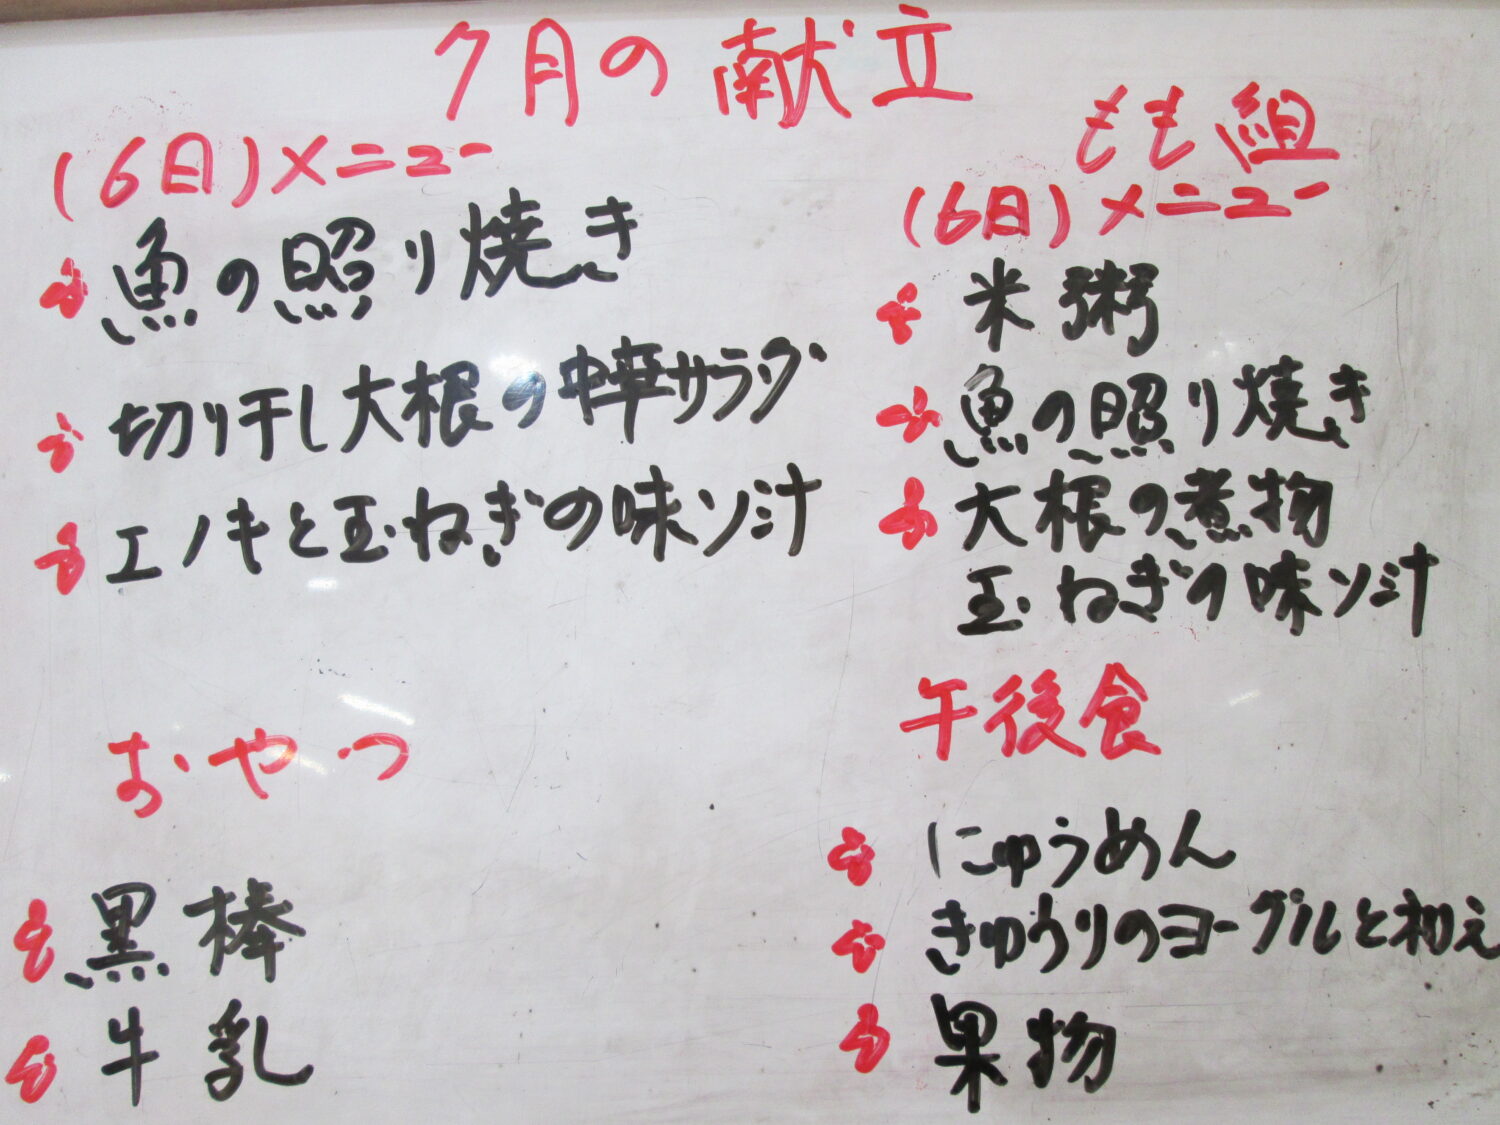 7月の献立
(6日)メニュー
魚の照り焼き
切り干し大根の中華サラダ
エノキと玉ねぎの味ソ汁
おやつ
黒棒
牛乳
もも組
(6日)メニュー
米粥
魚の照り焼き
大根の煮物
玉ねぎの味ソ汁
午後食
にゅうめん
きゅうりのヨーグルと和え
果物